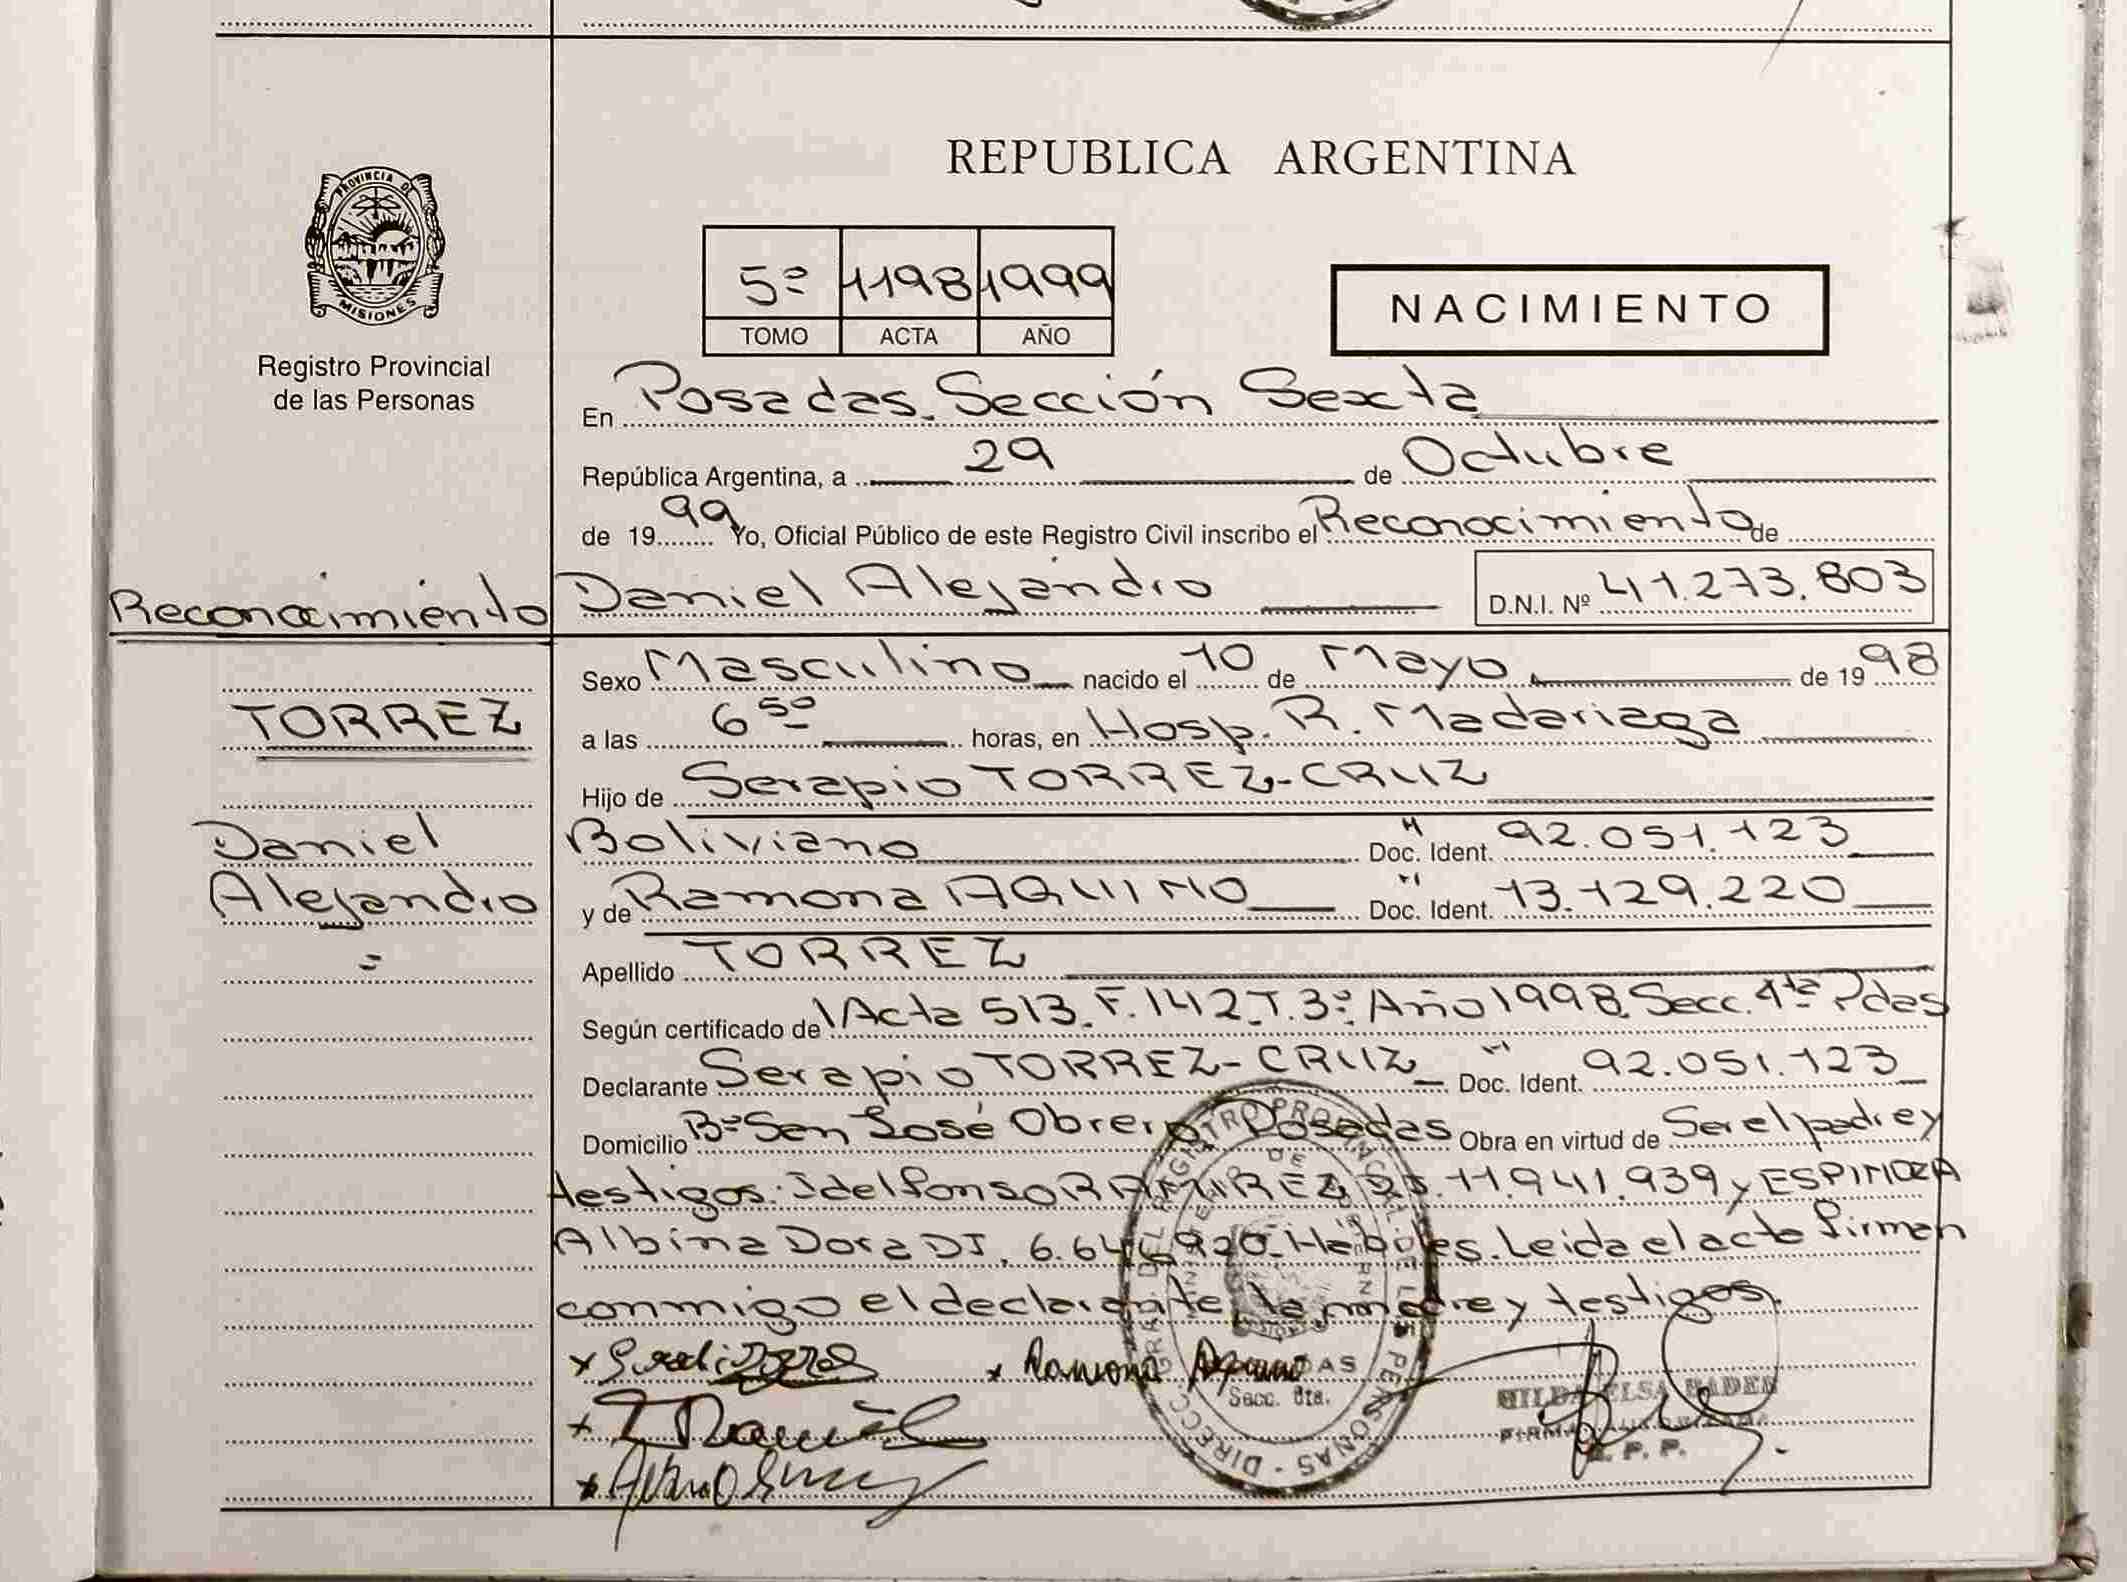 REPUBLICA ARGENTINA
PROVINCIA DE
MISIONES
Registro Provincial
de las Personas
5º 1198 1999
TOMO ACTA AÑO
NACIMIENTO
En Posadas. Sección Sexta
República Argentina, a 29 de Octubre
de 1999 Yo, Oficial Público de este Registro Civil inscribo el Reconocimiento de
Reconocimiento
Daniel Alejandro D.N.I. Nº 41.273.803
TORREZ
Daniel
Alejandro
Sexo Masculino nacido el 10 de Mayo de 1998
a las 6 50 horas, en Hosp. R. Madariaga
Hijo de Serapio TORREZ-CRUZ
Boliviano Doc. Ident. 92.051.123
y de Ramona AQUINO Doc. Ident. 13.129.220
Apellido TORREZ
Según certificado de Acta 513. F. 142. T. 3º. Año 1998. Secc. 4ta Pdas
Declarante Serapio TORREZ-CRUZ Doc. Ident. 92.051.123
Domicilio Bº San José Obrero Posadas Obra en virtud de Ser el padre y
testigos: Idelfonso RAMIREZ 11.941.939 y ESPINOZA
Albina Dora DI. Hábiles. Leida el acta firman
conmigo el declarante, la madre y testigos.
x x Ramona Aquino
x
x
DIRECC. GRAL. DEL REGISTRO PROVINCIAL DE LAS PERSONAS
Secc. 6ta.
HILDA ELSA BADER
FIRMA AUTORIZADA
R. P. P.